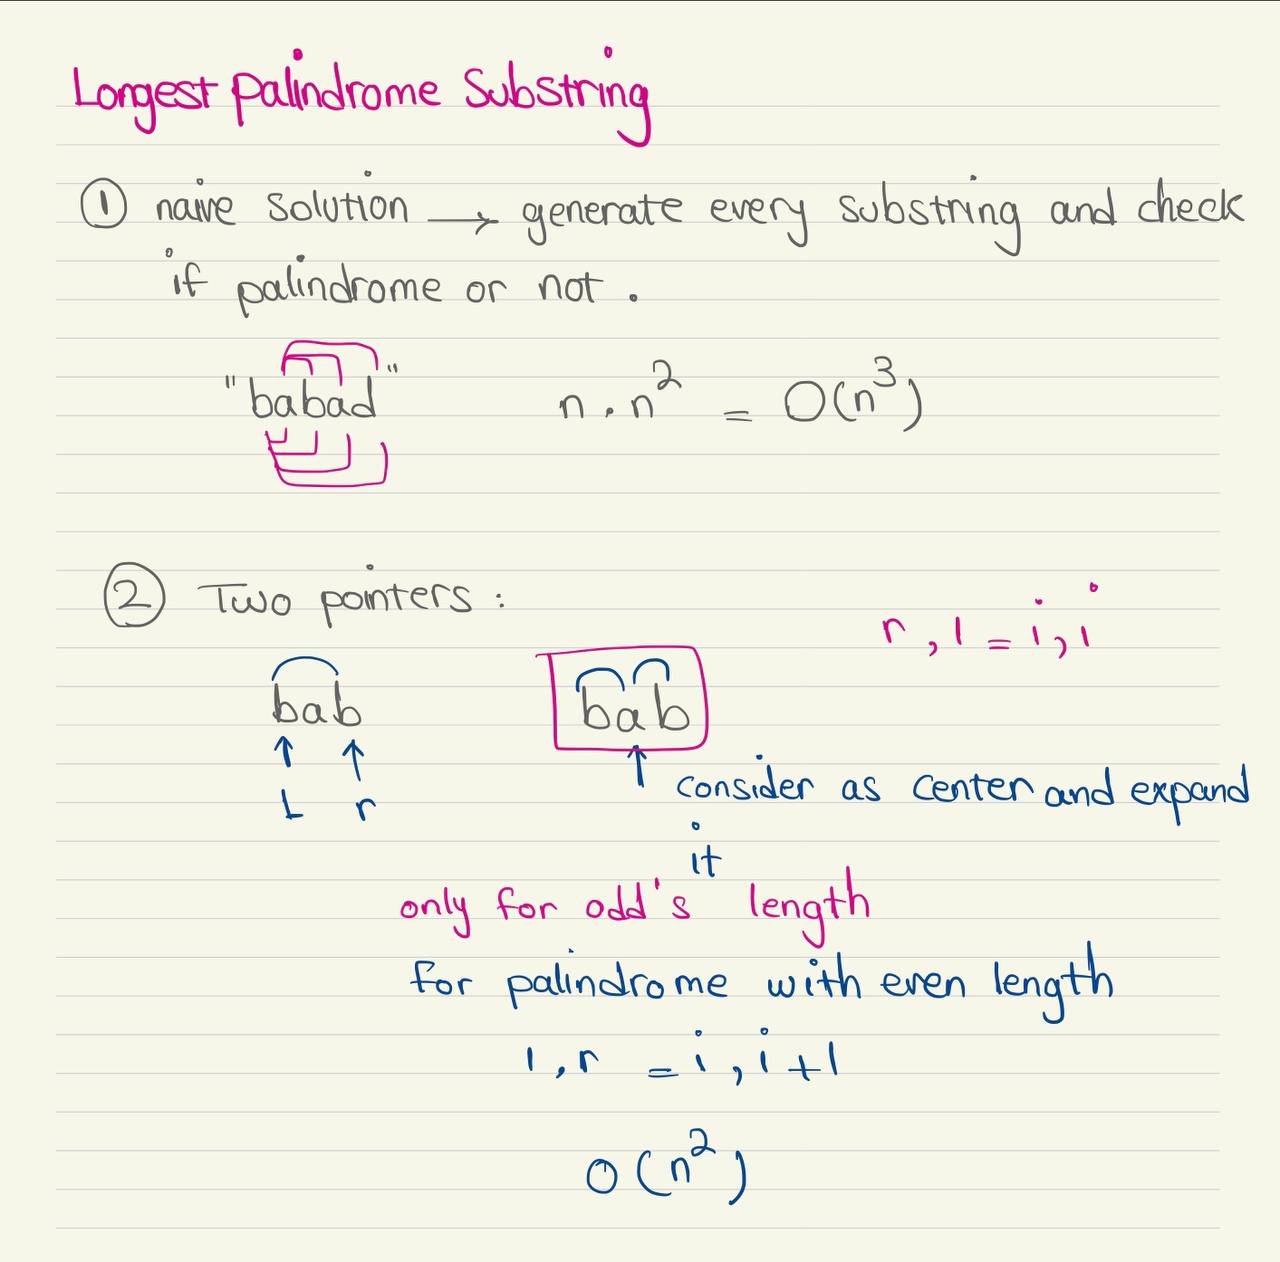 Longest Palindrome Substring
① naive solution → generate every substring and check
if palindrome or not.
"babad" n . n² = O(n³)
② Two pointers :
r, l = i, i
bab bab
L r
consider as center and expand
it
only for odd's length
for palindrome with even length
l, r = i, i+1
O(n²)